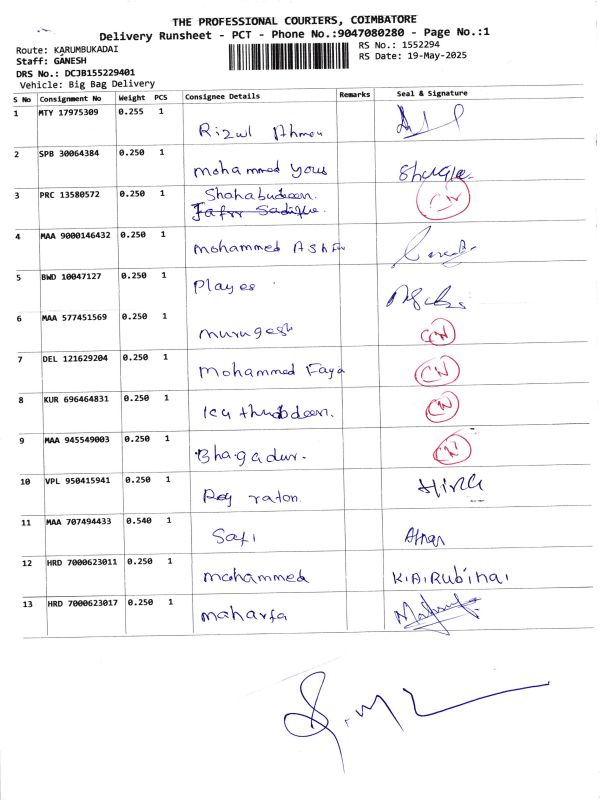 THE PROFESSIONAL COURIERS, COIMBATORE
Delivery Runsheet - PCT - Phone No.:9047080280 - Page No.:1
Route: KARUMBUKADAI
RS No.: 1552294
Staff: GANESH
RS Date: 19-May-2025
DRS No.: DCJB155229401
Vehicle: Big Bag Delivery
S No Consignment No Weight PCS Consignee Details Remarks Seal & Signature
1 MTY 17975309 0.255 1
Rizwl Ahmou
2 SPB 30064384 0.250 1
mohammed yous
3 PRC 13580572 0.250 1 Shahabudeen.
Jafrr Sadique. CN
4 MAA 9000146432 0.250 1
mohammed Ashf
5 BWD 10047127 0.250 1
Playes
6 MAA 577451569 0.250 1
murugesh CN
7 DEL 121629204 0.250 1
mohammed Faya CN
8 KUR 696464831 0.250 1
thubdeen. CN
9 MAA 945549003 0.250 1
Bhagadur. CN
10 VPL 950415941 0.250 1
Roy raton
11 MAA 707494433 0.540 1
Safi Afnan
12 HRD 7000623011 0.250 1
mohammed K.A.Rubinai
13 HRD 7000623017 0.250 1
maharfa